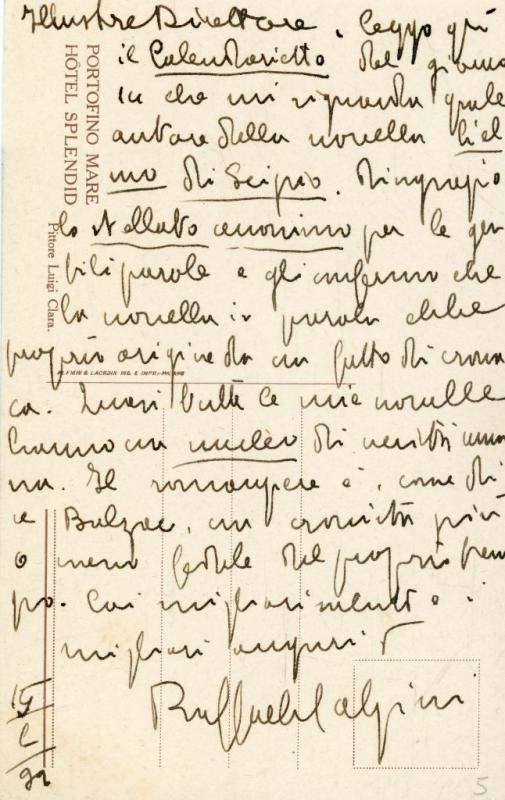 Illustre Direttore, leggo qui
il Calendarietto del giorno
in che mi riguarda quale
autore della novella l'el
mo di Scipio. Ringrazio
lo anonimo per le gen
tili parole e gli confermo che
la novella in parola ebbe
proprio origine da un fatto di crona
ca. Quasi tutte le mie novelle
hanno un nucleo di verità uma
na. Il romanziere è, come di
ce Balzac, un cronista più
o meno fedele del proprio tem
po. Coi migliori e i
migliori auguri
PORTOFINO MARE
HÔTEL SPLENDID
Pittore Luigi Clara.
ALFIERI & LACROIX INC. E IMPR. - MILANO
5